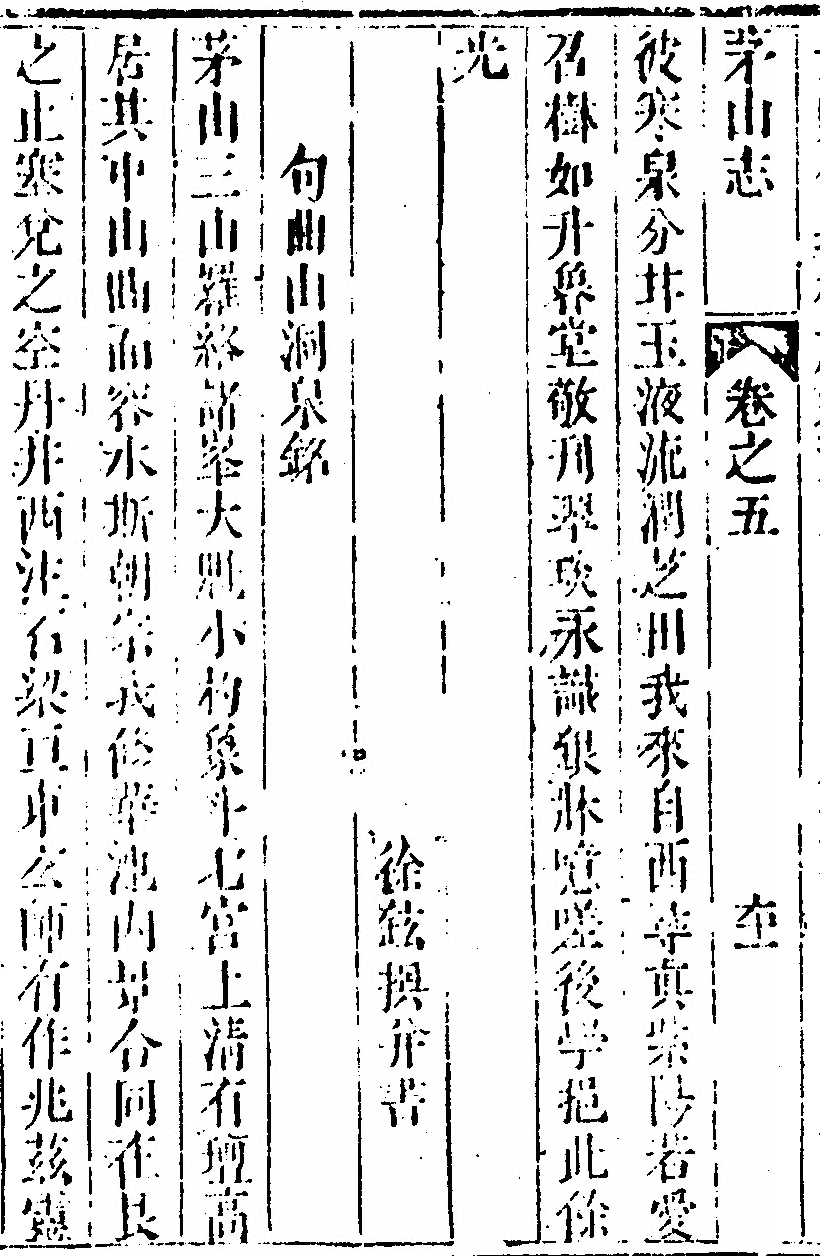 茅山志 卷之五
彼寒泉分井玉液流潤芝田我來自西尋真紫陽若愛
召樹如升魯堂敬刊翠琰永識銀牀噫嗟後學挹此餘
光
徐鉉撰并書
句曲山洞泉銘
茅山三山羅絡諸峯大魁小杓象斗七宮上清有壇高
居其中山曲而容水斯朝宗我條華池內外合同在艮
之止塞兌之空丹井西注石梁直中玄師有作兆茲靈